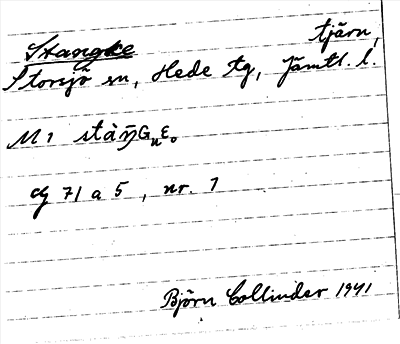 Stangke tjärn,
Storsjö sn, Hede tg, Jämtl. l.
M 1
71 a 5, nr. 7
Björn Collinder 1941